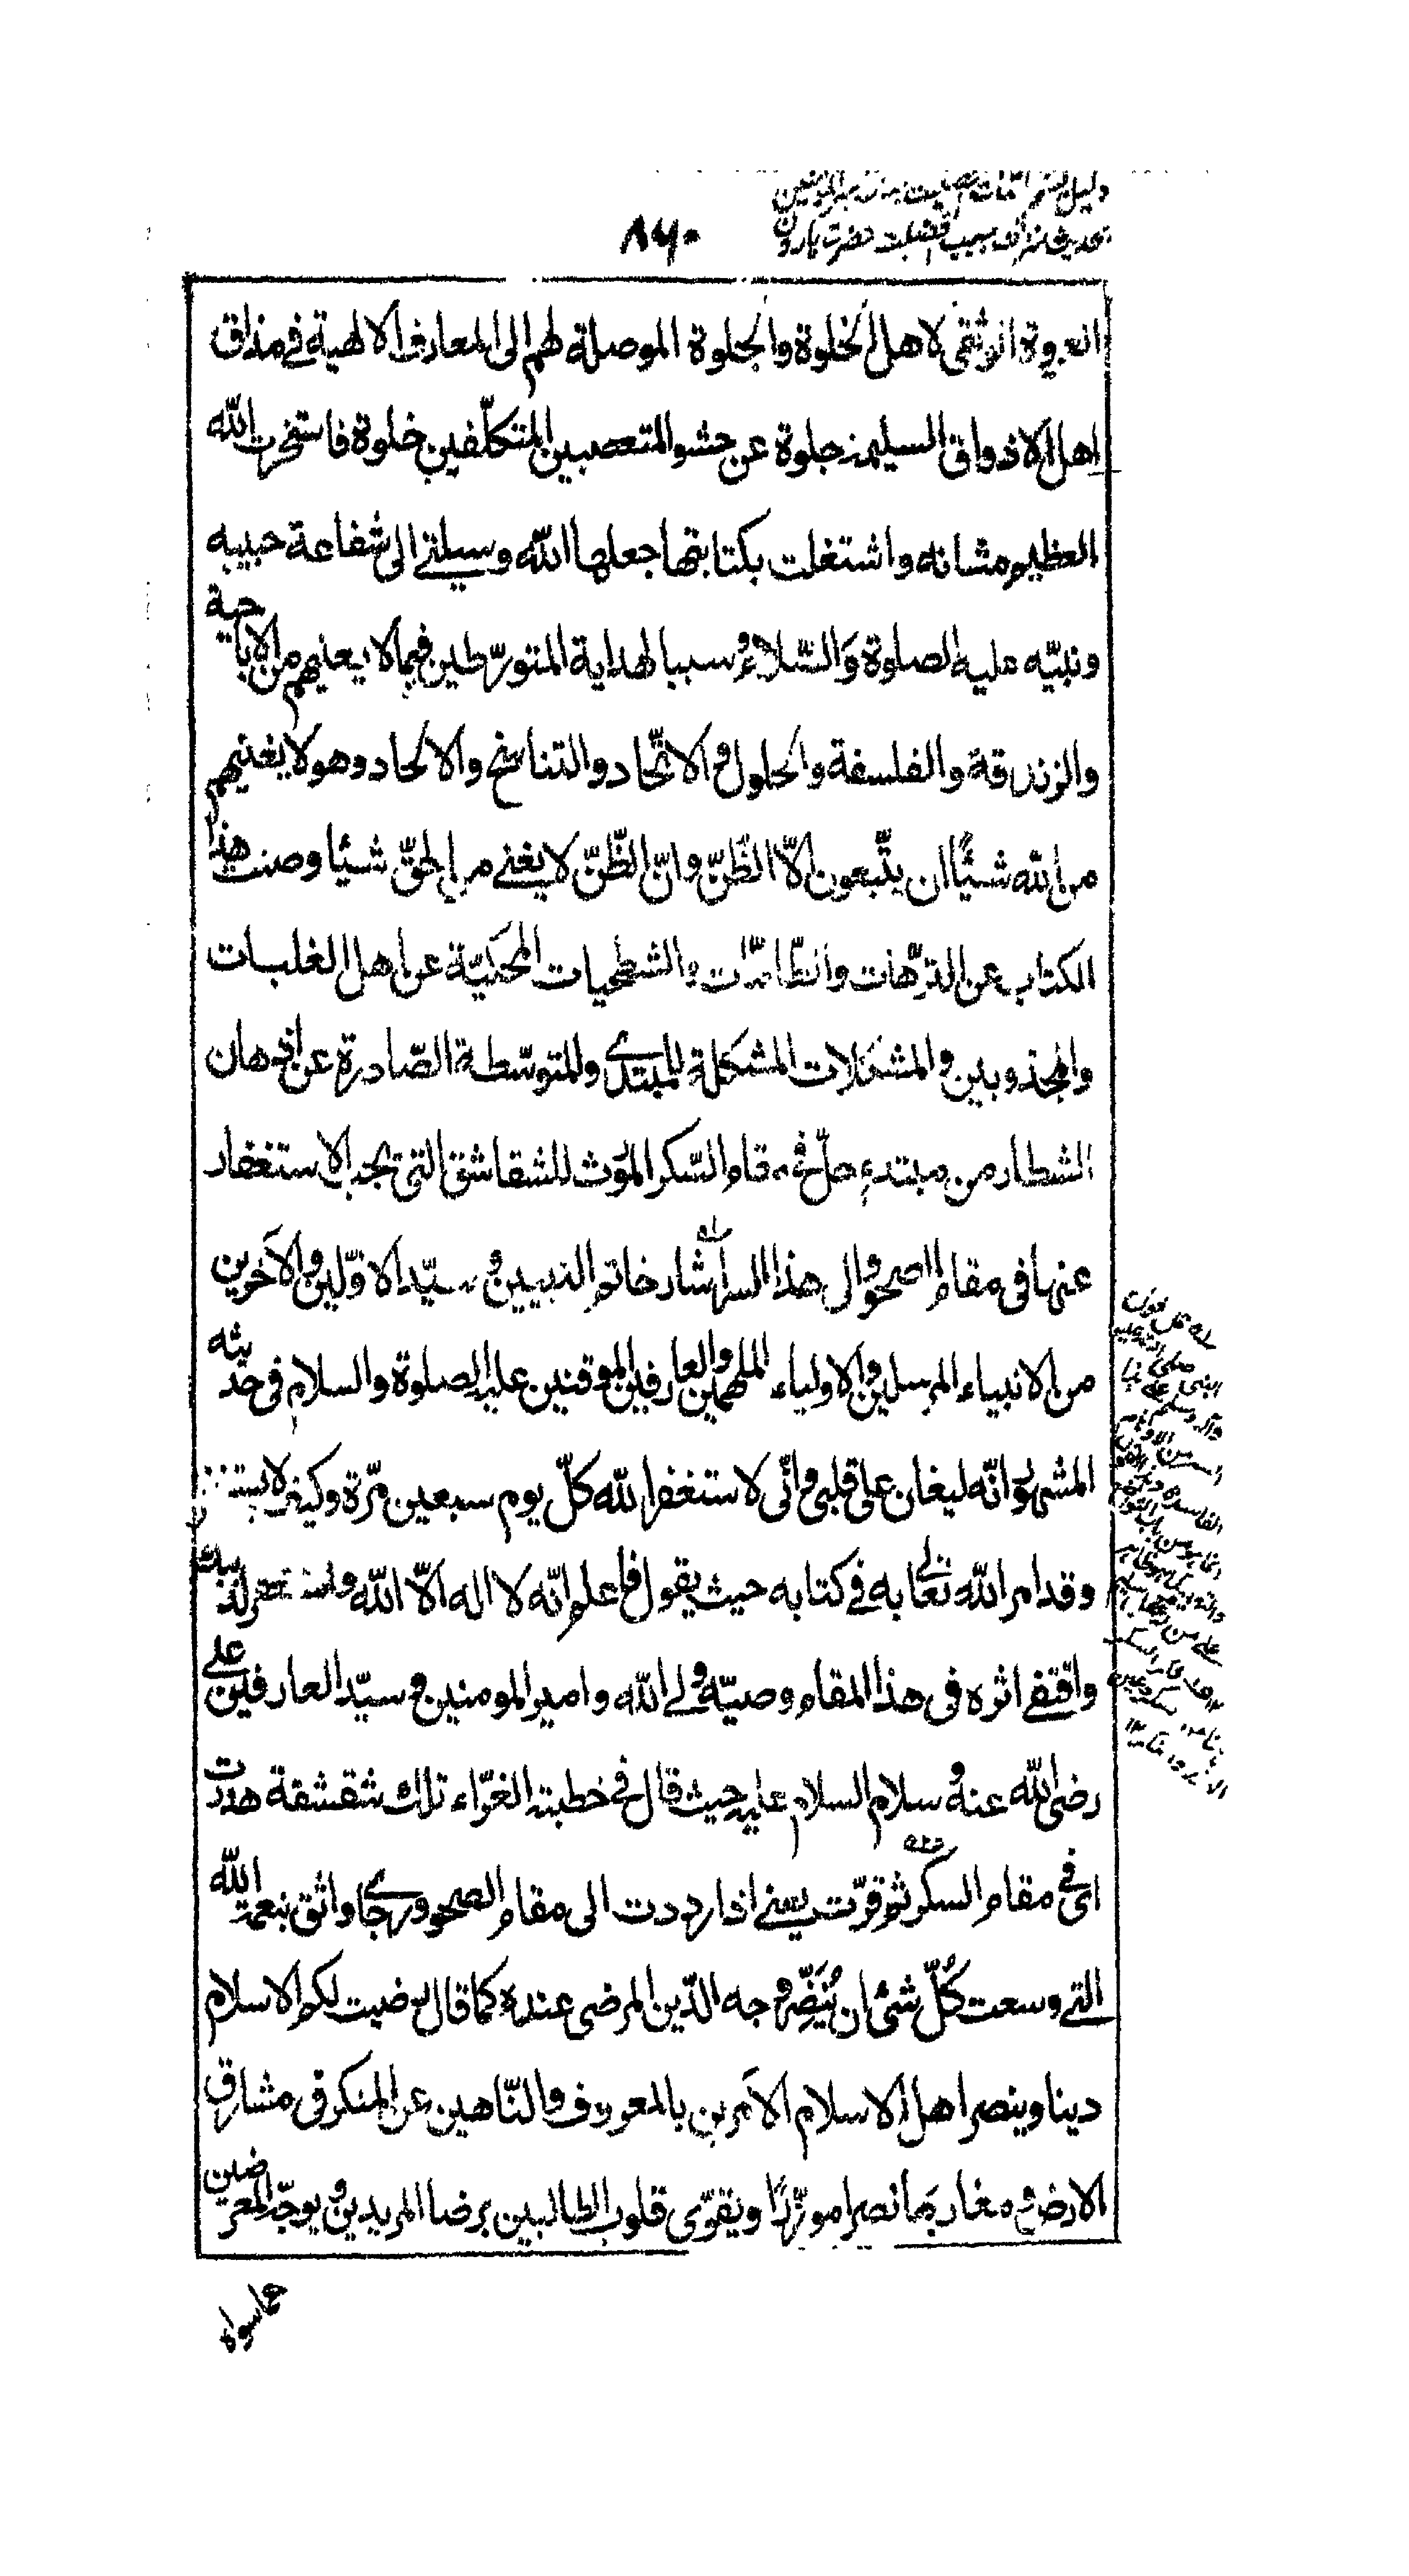 ۸۶۰
العروة الوثقى لاهل الخلوة والجلوة الموصلة لهم الى المعارف الالهية في مذاق
اهل الاذواق السليمة جلوة عن حشو المتعصبين المتكلّفين خلوة فاستخرت اللّه
العظيم شانه واشتغلت بكتابتها جعلها اللّه وسيلتي الى شفاعة حبيبه
ونبيّه عليه الصلوة وَالسّلامُ وسببا لهداية المتورّطين فيما لا يعنيهم من الاباحية
والزندقة والفلسفة والحلول والاتّحاد والتناسخ والالحاد وهو لا يغنيهم
من اللّه شيئًا ان يتّبعون الّا الظّنّ وانّ الظّنّ لا يغني من الحقّ شيئا وصنت هذا
الكتاب عن الترّهات والطّامّات والشطحيات المحكيّة عن اهل الغلبات
والمجذوبين والمشكلات المشكلة للمبتدى والمتوسّطة الصّادرة عن اذهان
الشطار من مبتدء حلّ في مقام السّكر المؤرث للشقاشق التى يجب الاستغفار
عنها فى مقام الصحو والى هذا السرّ اشار خاتم النبيين وسيّد الاوّلين والآخرين
من الانبياء المرسلين والاولياء الملهمين والعارفين الموقنين عليه الصلوة والسلام فى حديثه
المشهور انّه ليغان على قلبى وانّى لاستغفر اللّه كلّ يوم سبعين مرّة وكيف لا يستغفر
وقد امر اللّه تعالى به في كتابه حيث يقول فاعلم انّه لا اله الّا اللّه واستغفر لذنبك
واقتفى اثره فى هذا المقام وصيّه ولى اللّه وامير المومنين وسيّد العارفين على
رضى اللّه عنه وسلام السلام عليه حيث قال في خطبته الغرّاء تلك شقشقة هدرت
اى في مقام السكر ثم قرّت يعنى اذا رددت الى مقام الصحو ورجاء واثق بنعمة اللّه
التى وسعت كُلّ شئ ان يُنَضِّر وجه الدّين المرضى عنده كما قال رضيت لكم الاسلام
دينا وينصر اهل الاسلام الآمرين بالمعروف والنّاهين عن المنكر فى مشارق
الارض ومغاربها نصرا موزّرًا ويقوّى قلوب الطالبين برضا المريدين ويوجّه المعرضين
عما سواه